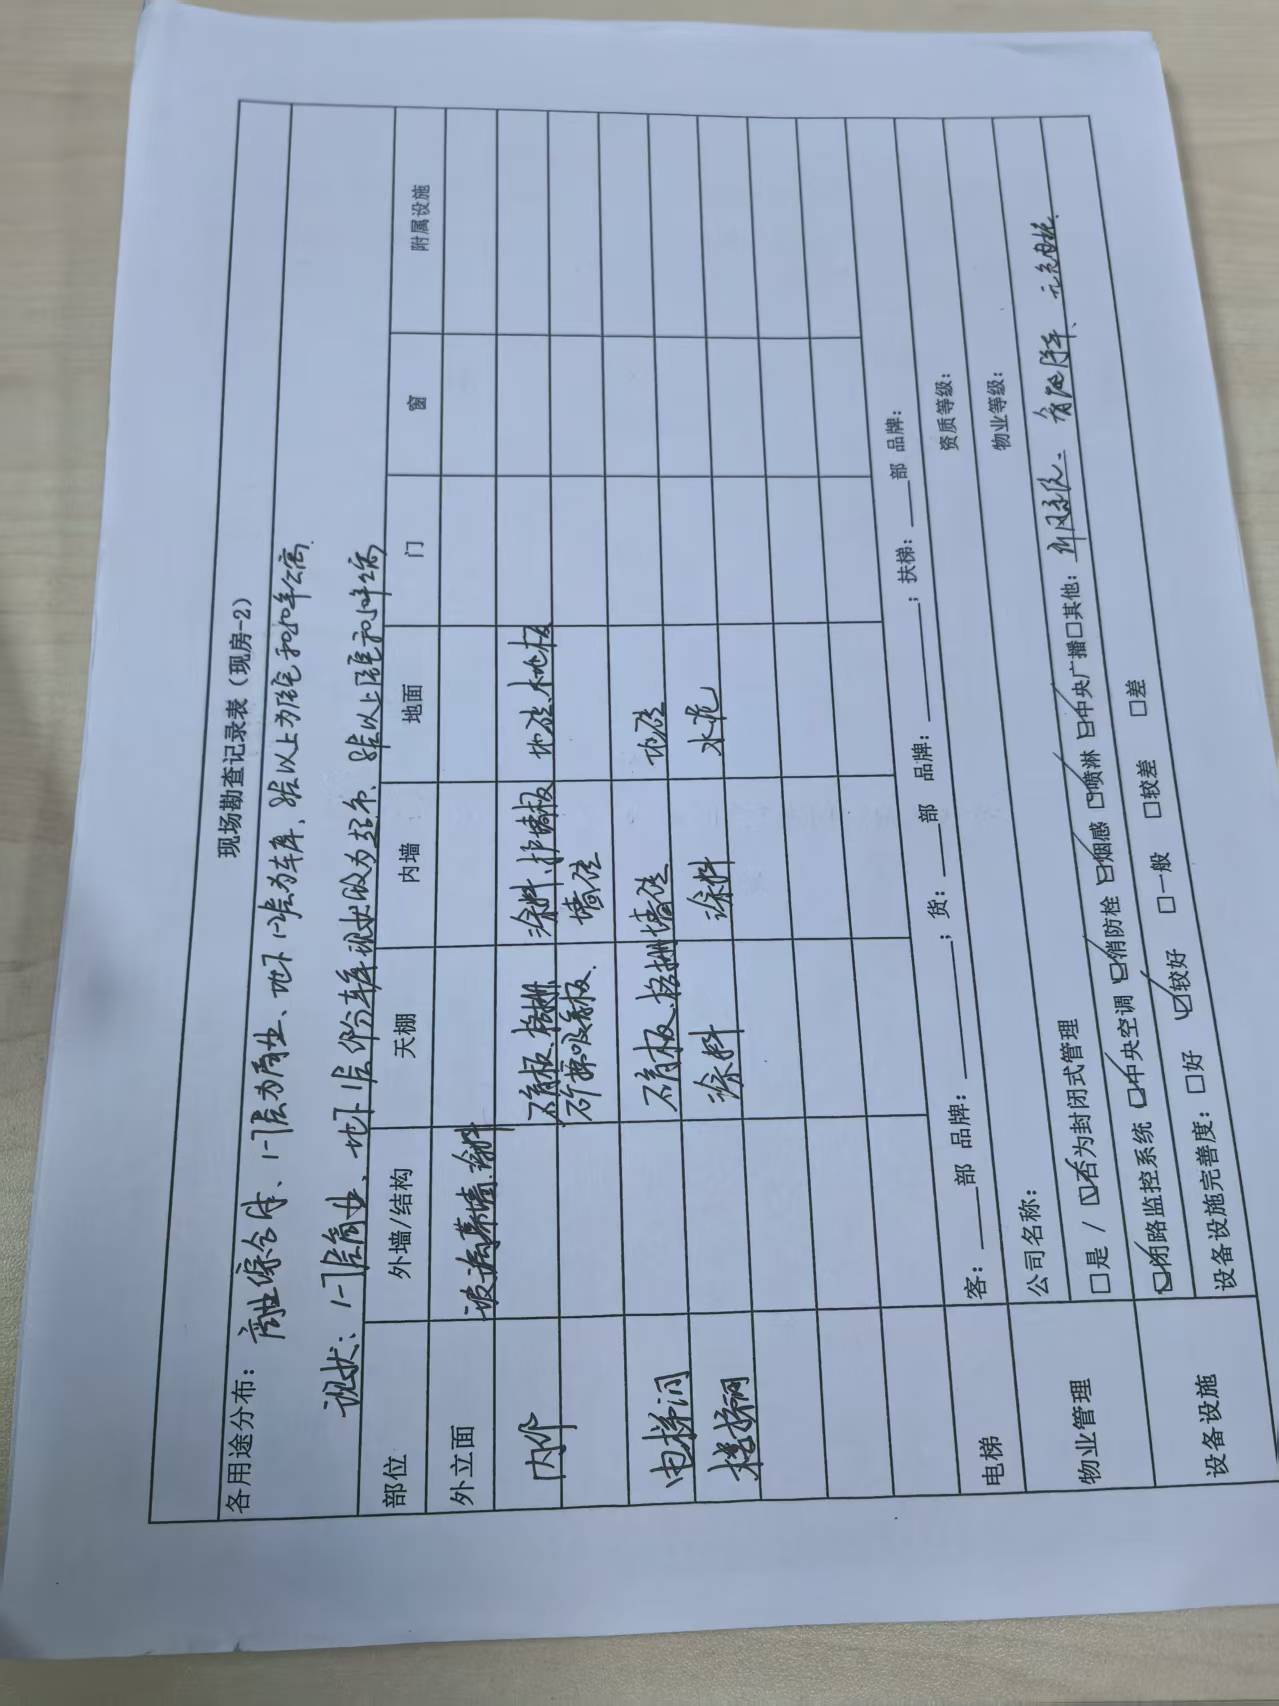 现场勘查记录表（现房-2）
各用途分布：商业综合体、1-7层为商业、地下1-2层为车库、8层以上为住宅和40年公寓.
现状：1-7层商业、地下1层部分车库现状改为超市、8层以上住宅和40年公寓
部位 外墙/结构 天棚 内墙 地面 门 窗 附属设施
外立面 玻璃幕墙、涂料
内部 石膏板、格栅 涂料、护墙板 地砖、木地板
矿棉吸音板. 墙砖
电梯间 石膏板、格栅 墙砖 地砖
楼梯间 涂料 涂料 水泥
电梯 客：___部 品牌：______；货：___部 品牌：______；扶梯：___部 品牌：
物业管理 公司名称： 资质等级：
□是 / ☑否为封闭式管理 物业等级：
设备设施 ☑闭路监控系统 ☑中央空调 ☑消防栓 ☑烟感 ☑喷淋 ☑中央广播□其他：新风系统、有地停车、无充电桩.
设备设施完善度：□好 ☑较好 □一般 □较差 □差